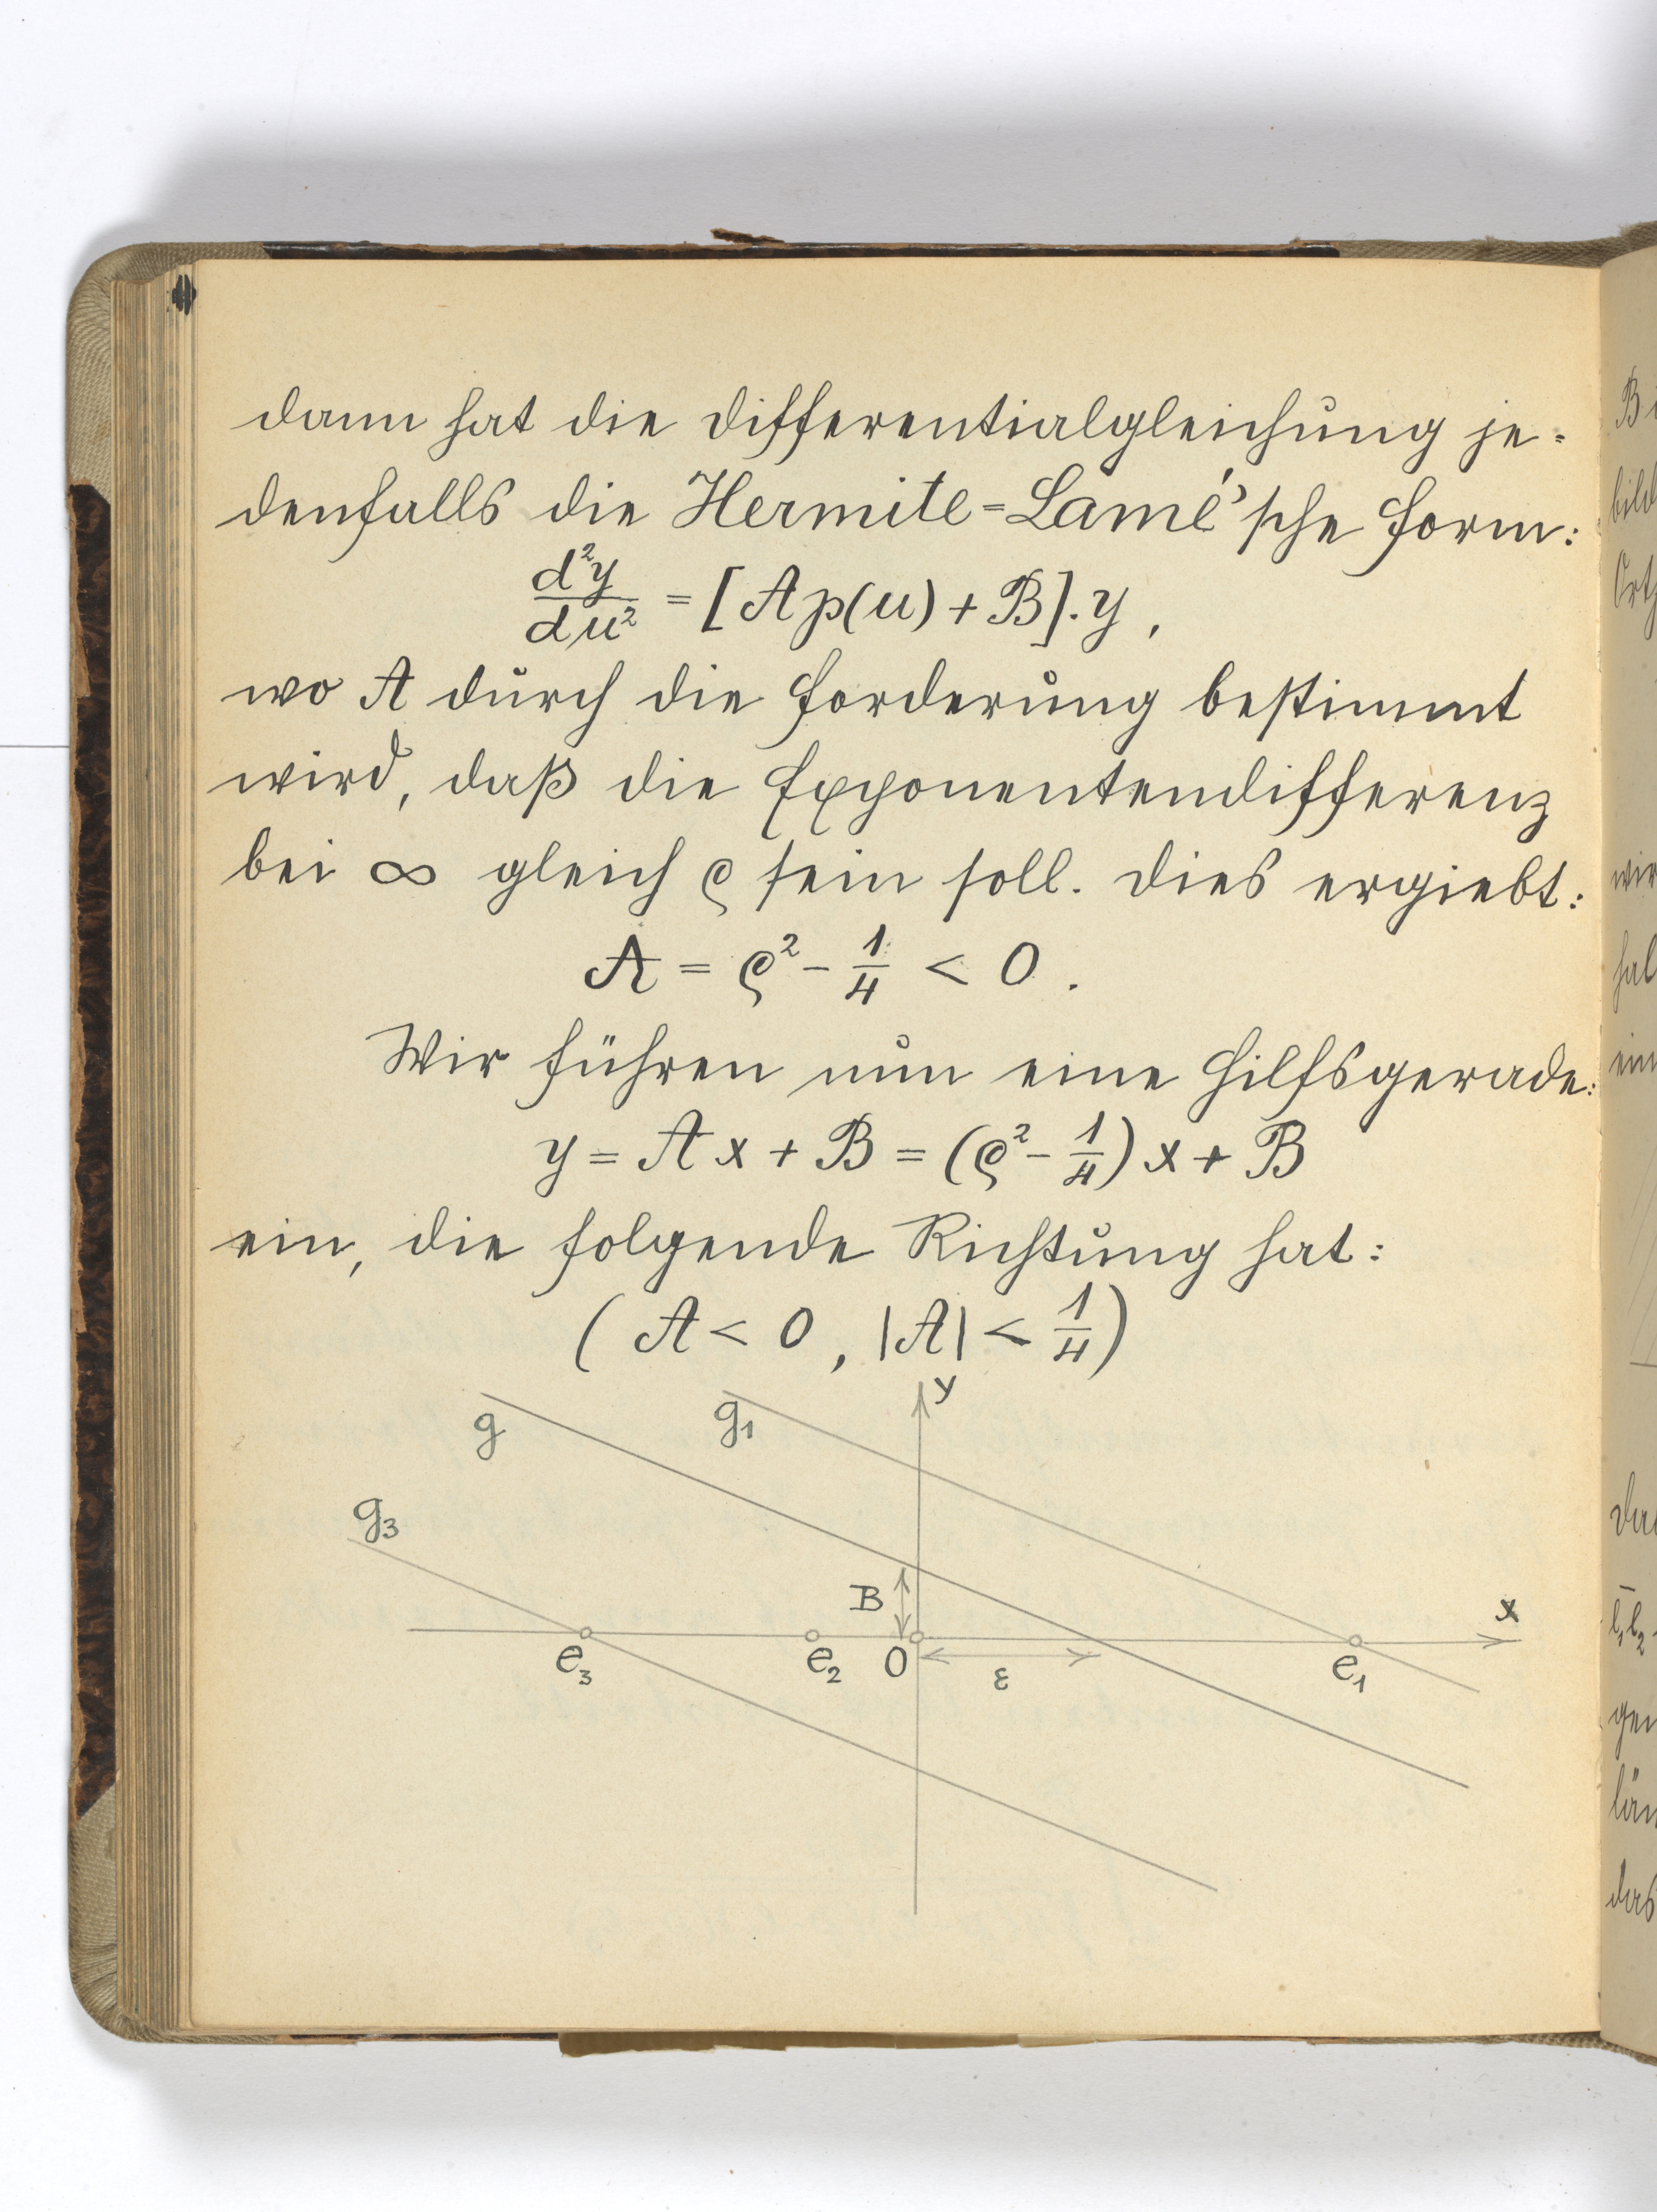 dann hat die Differentialgleichung je=
denfalls die Hermite=Lamé'sche Form:
d²y/du² = [A p(u) + B]. y ,
wo A durch die Forderung bestimmt
wird, daß die Exponentendifferenz
bei ∞ gleich ϱ sein soll. Dies ergiebt:
A = ϱ² - 1/4 < 0 .
Wir führen nun eine Hilfsgerade:
y = A x + B = (ϱ² - 1/4) x + B
ein, die folgende Richtung hat:
( A < 0 , |A| < 1/4 )
y
g
g₁
g₃
B
x
e₃
e₂
0
ε
e₁